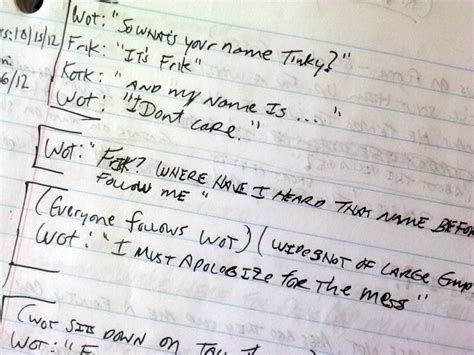 Wot: "So what's your name Tinky?"
s:10/15/12 Frik: "It's Frik"
6/12 Kotk: "And my name Is ...."
Wot: "I Dont care."
Wot: "Frik? WHERE HAVE I HEARD THAT NAME BEFO
Follow ME"
(Everyone follows WOT) (WIDESHOT OF LARGE
Wot: "I Must APOLOGIZE for the mess"
(WOT SITS DOWN ON
WOT: